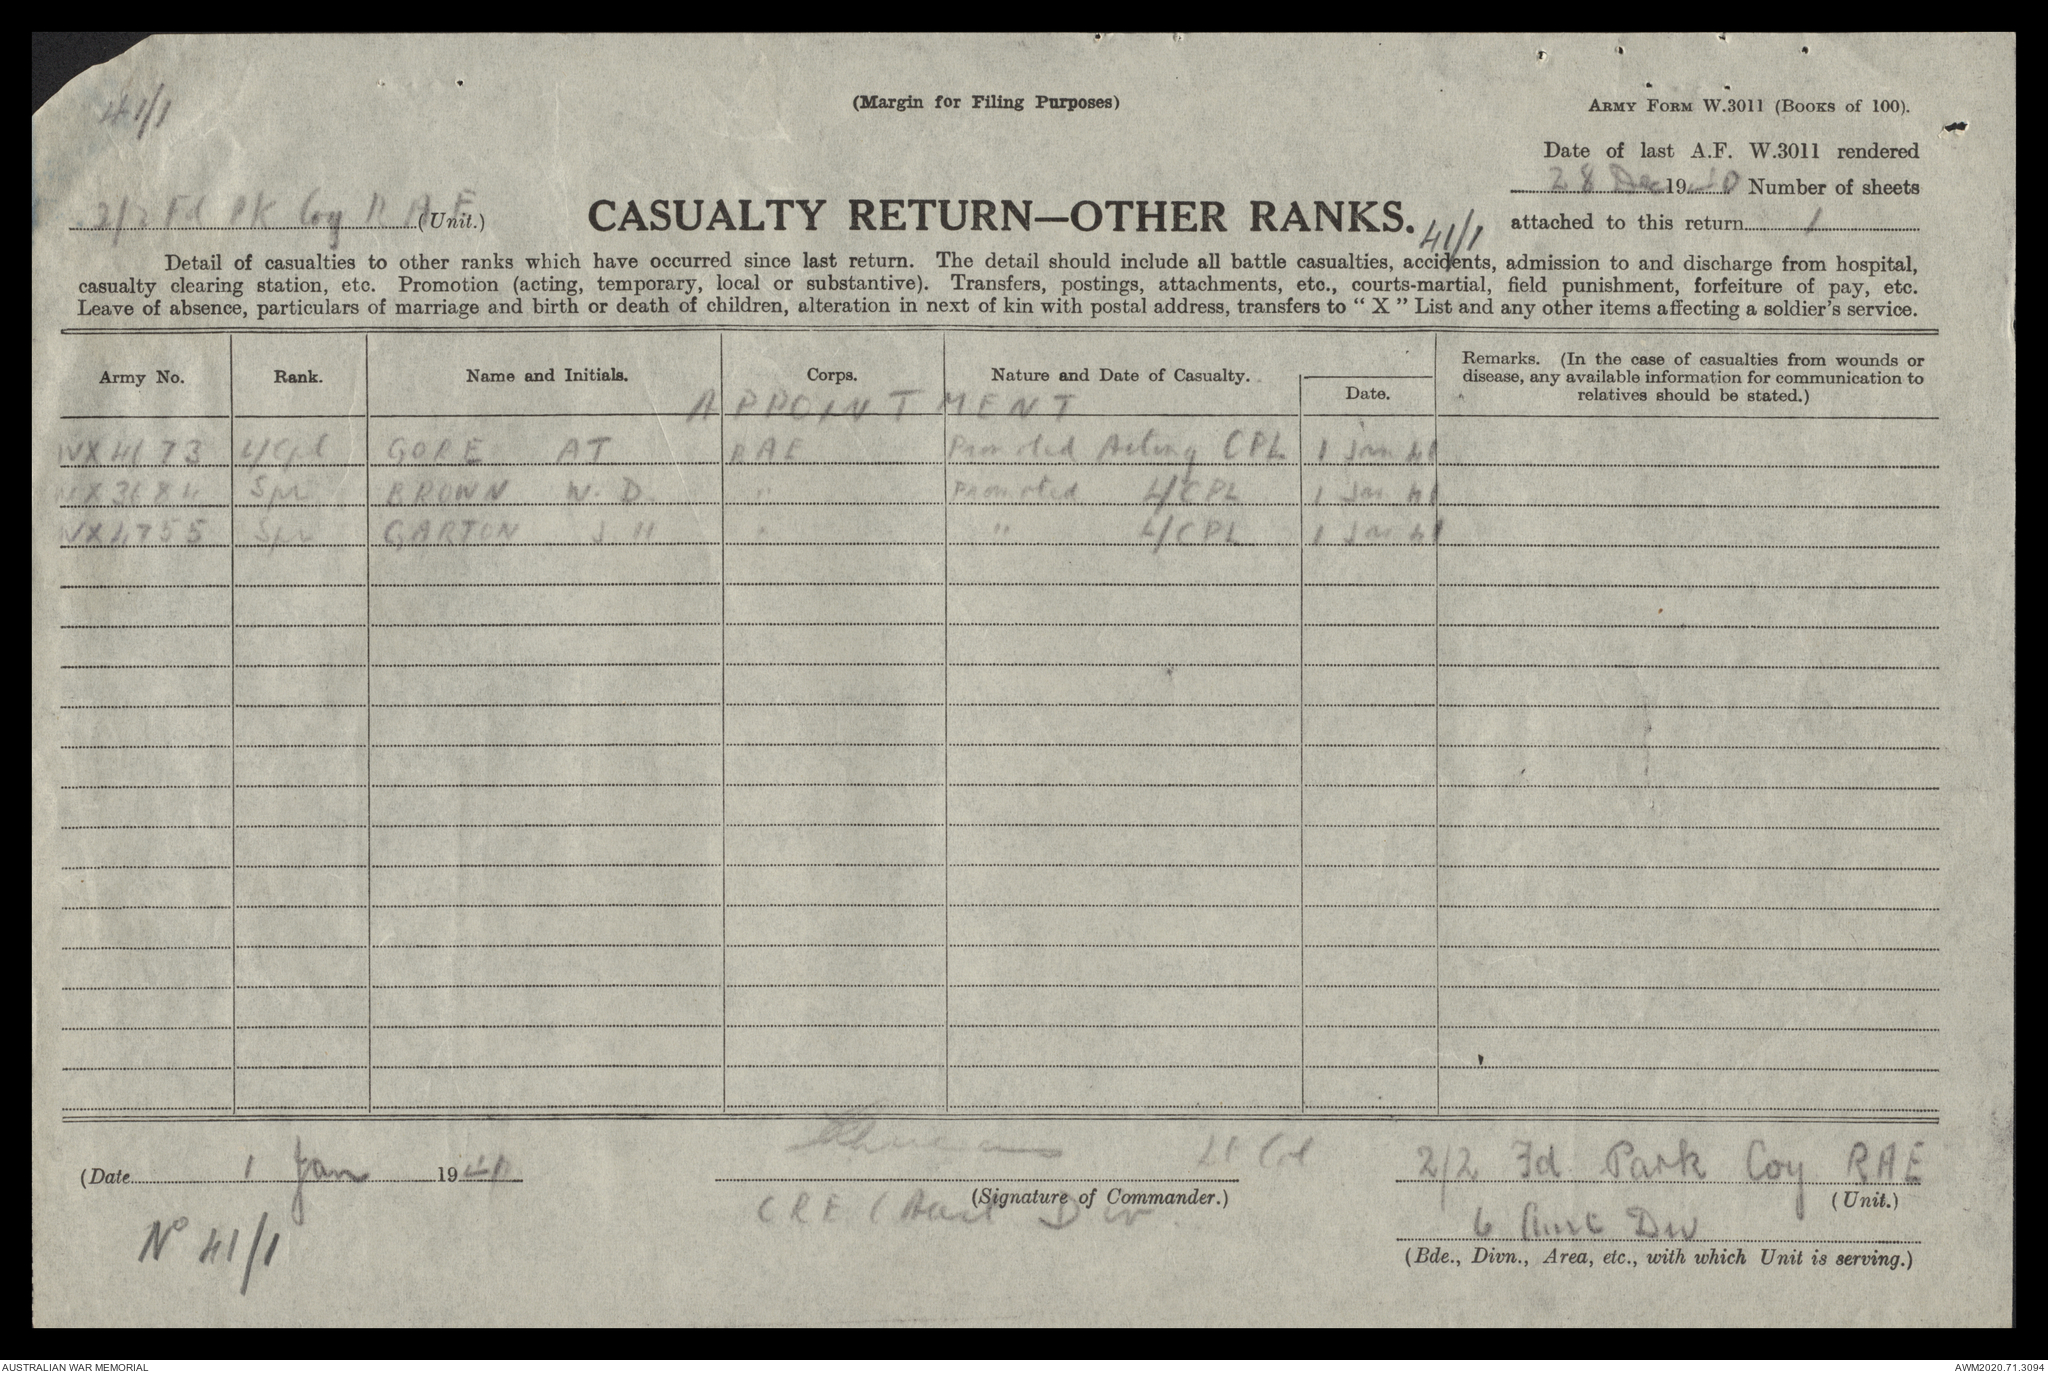 41/1
(Margin for Filing Purposes)
ARMY FORM W.3011 (BOOKS OF 100).
Date of last A.F. W.3011 rendered
28 Dec 1940 Number of sheets
attached to this return 1
2/2 Fd Pk Coy R A E (Unit.)
CASUALTY RETURN—OTHER RANKS. 41/1
Detail of casualties to other ranks which have occurred since last return. The detail should include all battle casualties, accidents, admission to and discharge from hospital,
casualty clearing station, etc. Promotion (acting, temporary, local or substantive). Transfers, postings, attachments, etc., courts-martial, field punishment, forfeiture of pay, etc.
Leave of absence, particulars of marriage and birth or death of children, alteration in next of kin with postal address, transfers to " X " List and any other items affecting a soldier's service.
Army No. Rank. Name and Initials. Corps. Nature and Date of Casualty. Date. Remarks. (In the case of casualties from wounds or
disease, any available information for communication to
relatives should be stated.)
APPOINTMENT
L/Cpl GORE AT RAE Promoted Acting CPL 1 Jan 41
Spr BROWN W. D. " Promoted L/CPL 1 Jan 41
Spr GARTON J " L/CPL 1 Jan 41
(Date 1 Jan 1941
Lt Col
(Signature of Commander.)
CRE 6 Aust Div.
2/2 Fd Park Coy RAE
(Unit.)
6 Aust Div
(Bde., Divn., Area, etc., with which Unit is serving.)
No 41/1
AUSTRALIAN WAR MEMORIAL
AWM2020.71.3094